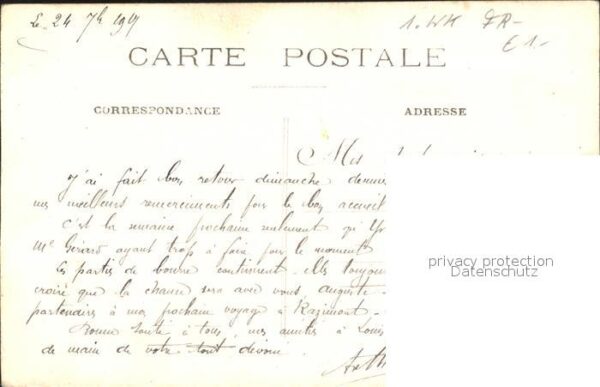 Le 24 7h 1917
1. WK FR-
€ 1.-
CARTE POSTALE
CORRESPONDANCE
ADRESSE
Mes
J'ai fait bon retour dimanche dernier
mes meilleurs remerciements pour le bon accueil
c'est la semaine prochaine seulement qu'
Me Gérard ayant trop à faire pour le moment
Les parties de bourre continuent elles toujours
croire que la chance sera avec vous, Auguste
partenaires à mon prochain voyage à Razimont -
Bonne santé à tous, mes amitiés à Louis
de main de votre tout dévoué
privacy protection
Datenschutz